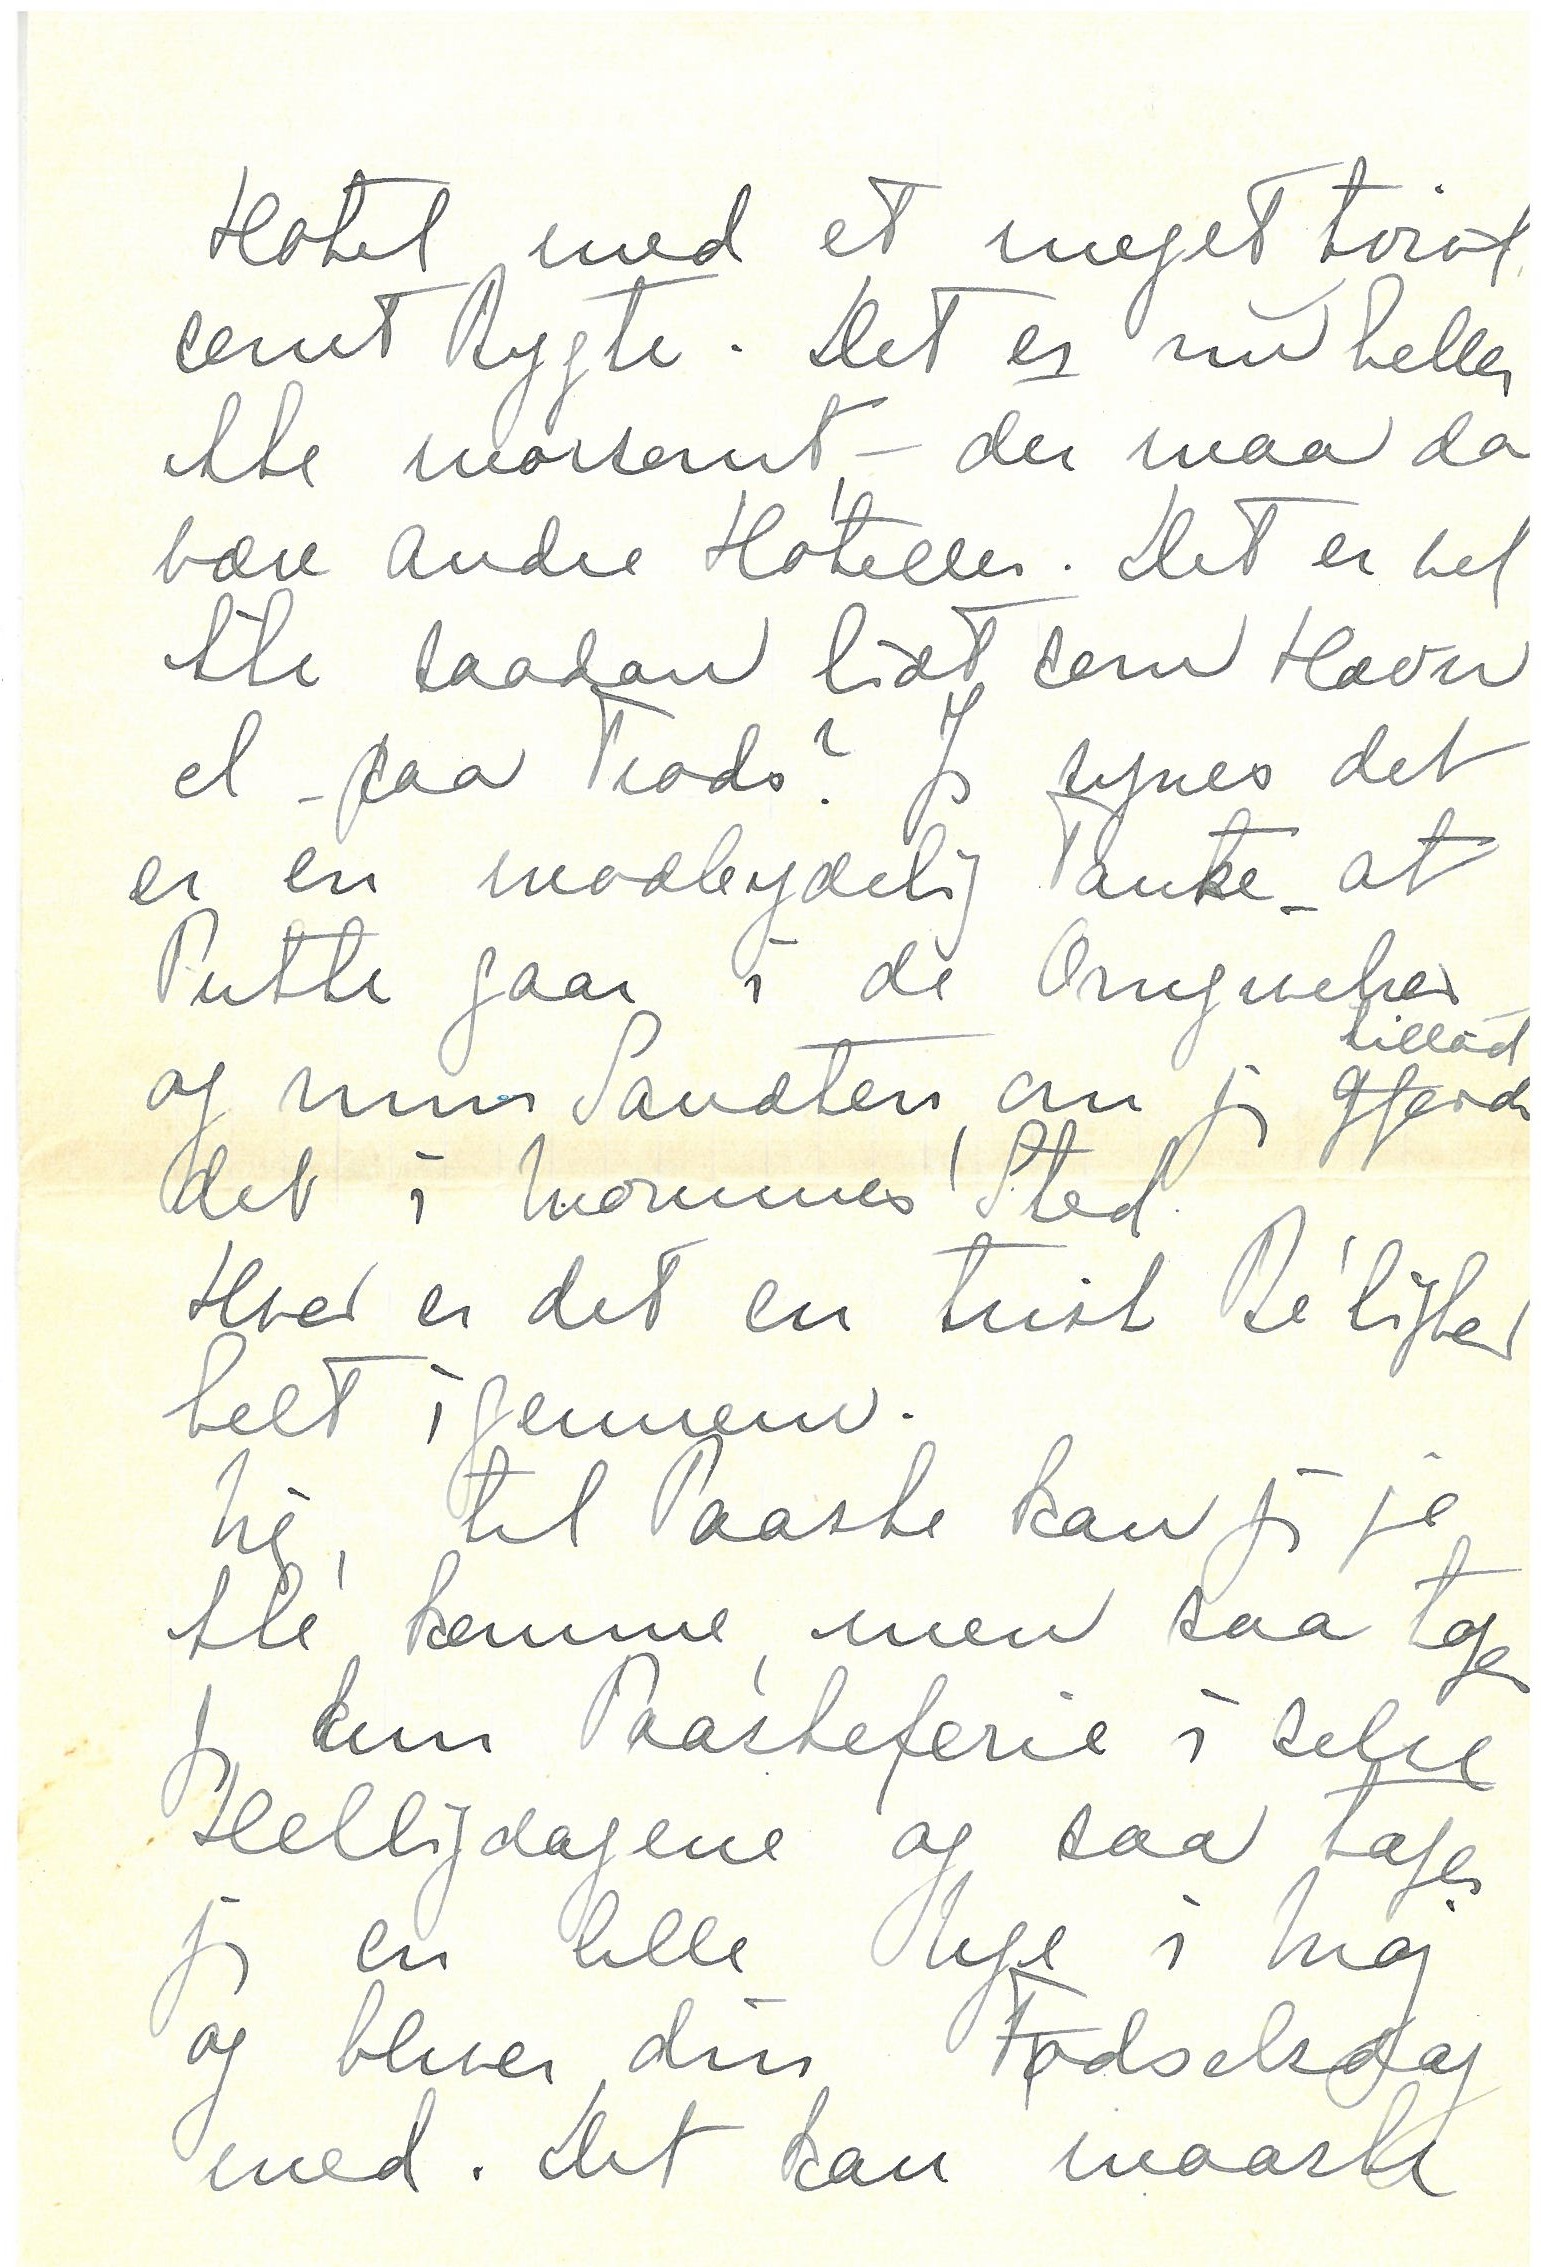 Hotel med et meget tvivl
somt Rygte. Det er nu heller
ikke morsomt, – der maa da
være andre Hoteller. Det er vel
ikke saadan lidt som Hævn
el – paa Trods? Jeg synes det
er en modbydelig Tanke – at
Putte gaar i de Omgivelser
og min Sandten, om jeg tillod
det i Mornines Sted.
Hvor er det en trist Bé'lighed
helt igennem.
Nej, til Paaske kan jeg jo
ikke komme, men saa tager
jeg kun Paaskeferie i selve
Helligdagene og saa tager
jeg en lille Uge i Maj
og bliver din Fødselsdag
med. Det kan maaske